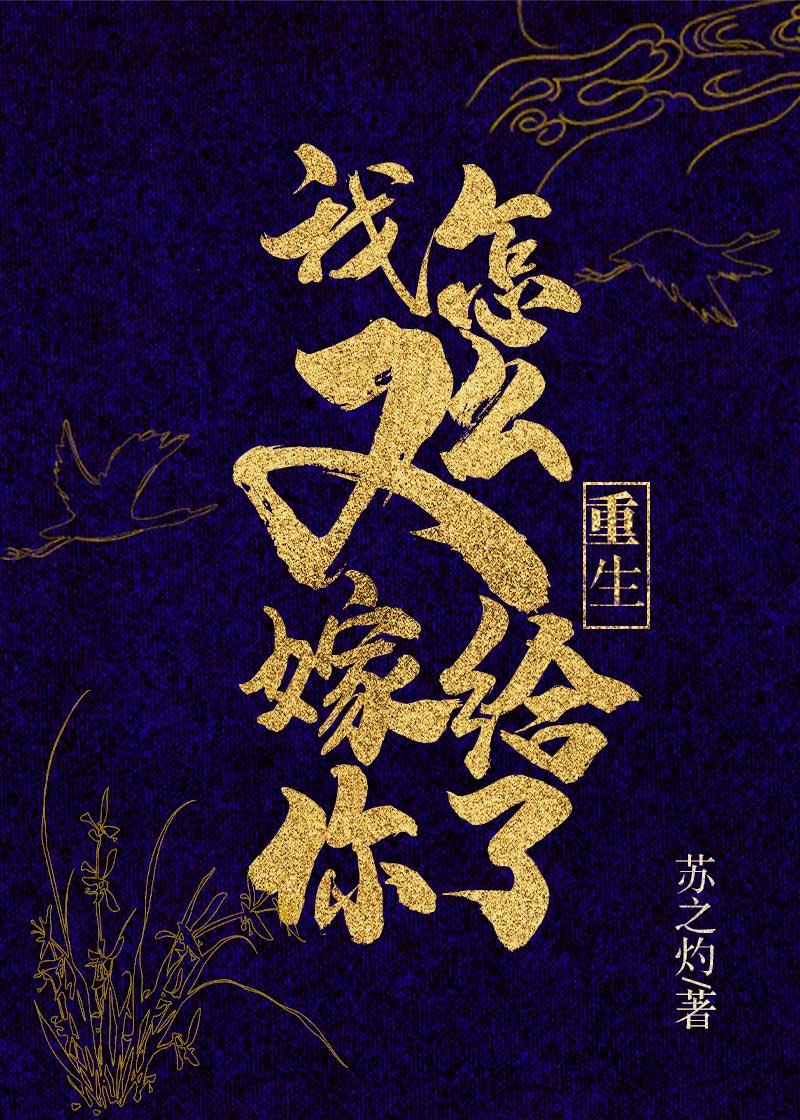 我怎么
又
嫁给
你了
重生
苏之灼/著